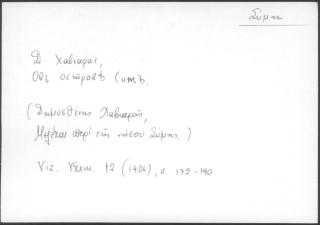 Σύμη
Д. Хавіарас,
Объ островъ Симъ.
(Δημοσθένης Χαβιαράς,
Μελέται περὶ τῆς νήσου Σύμης.)
Viz. Vrem. 12 (1906), σ 172-190